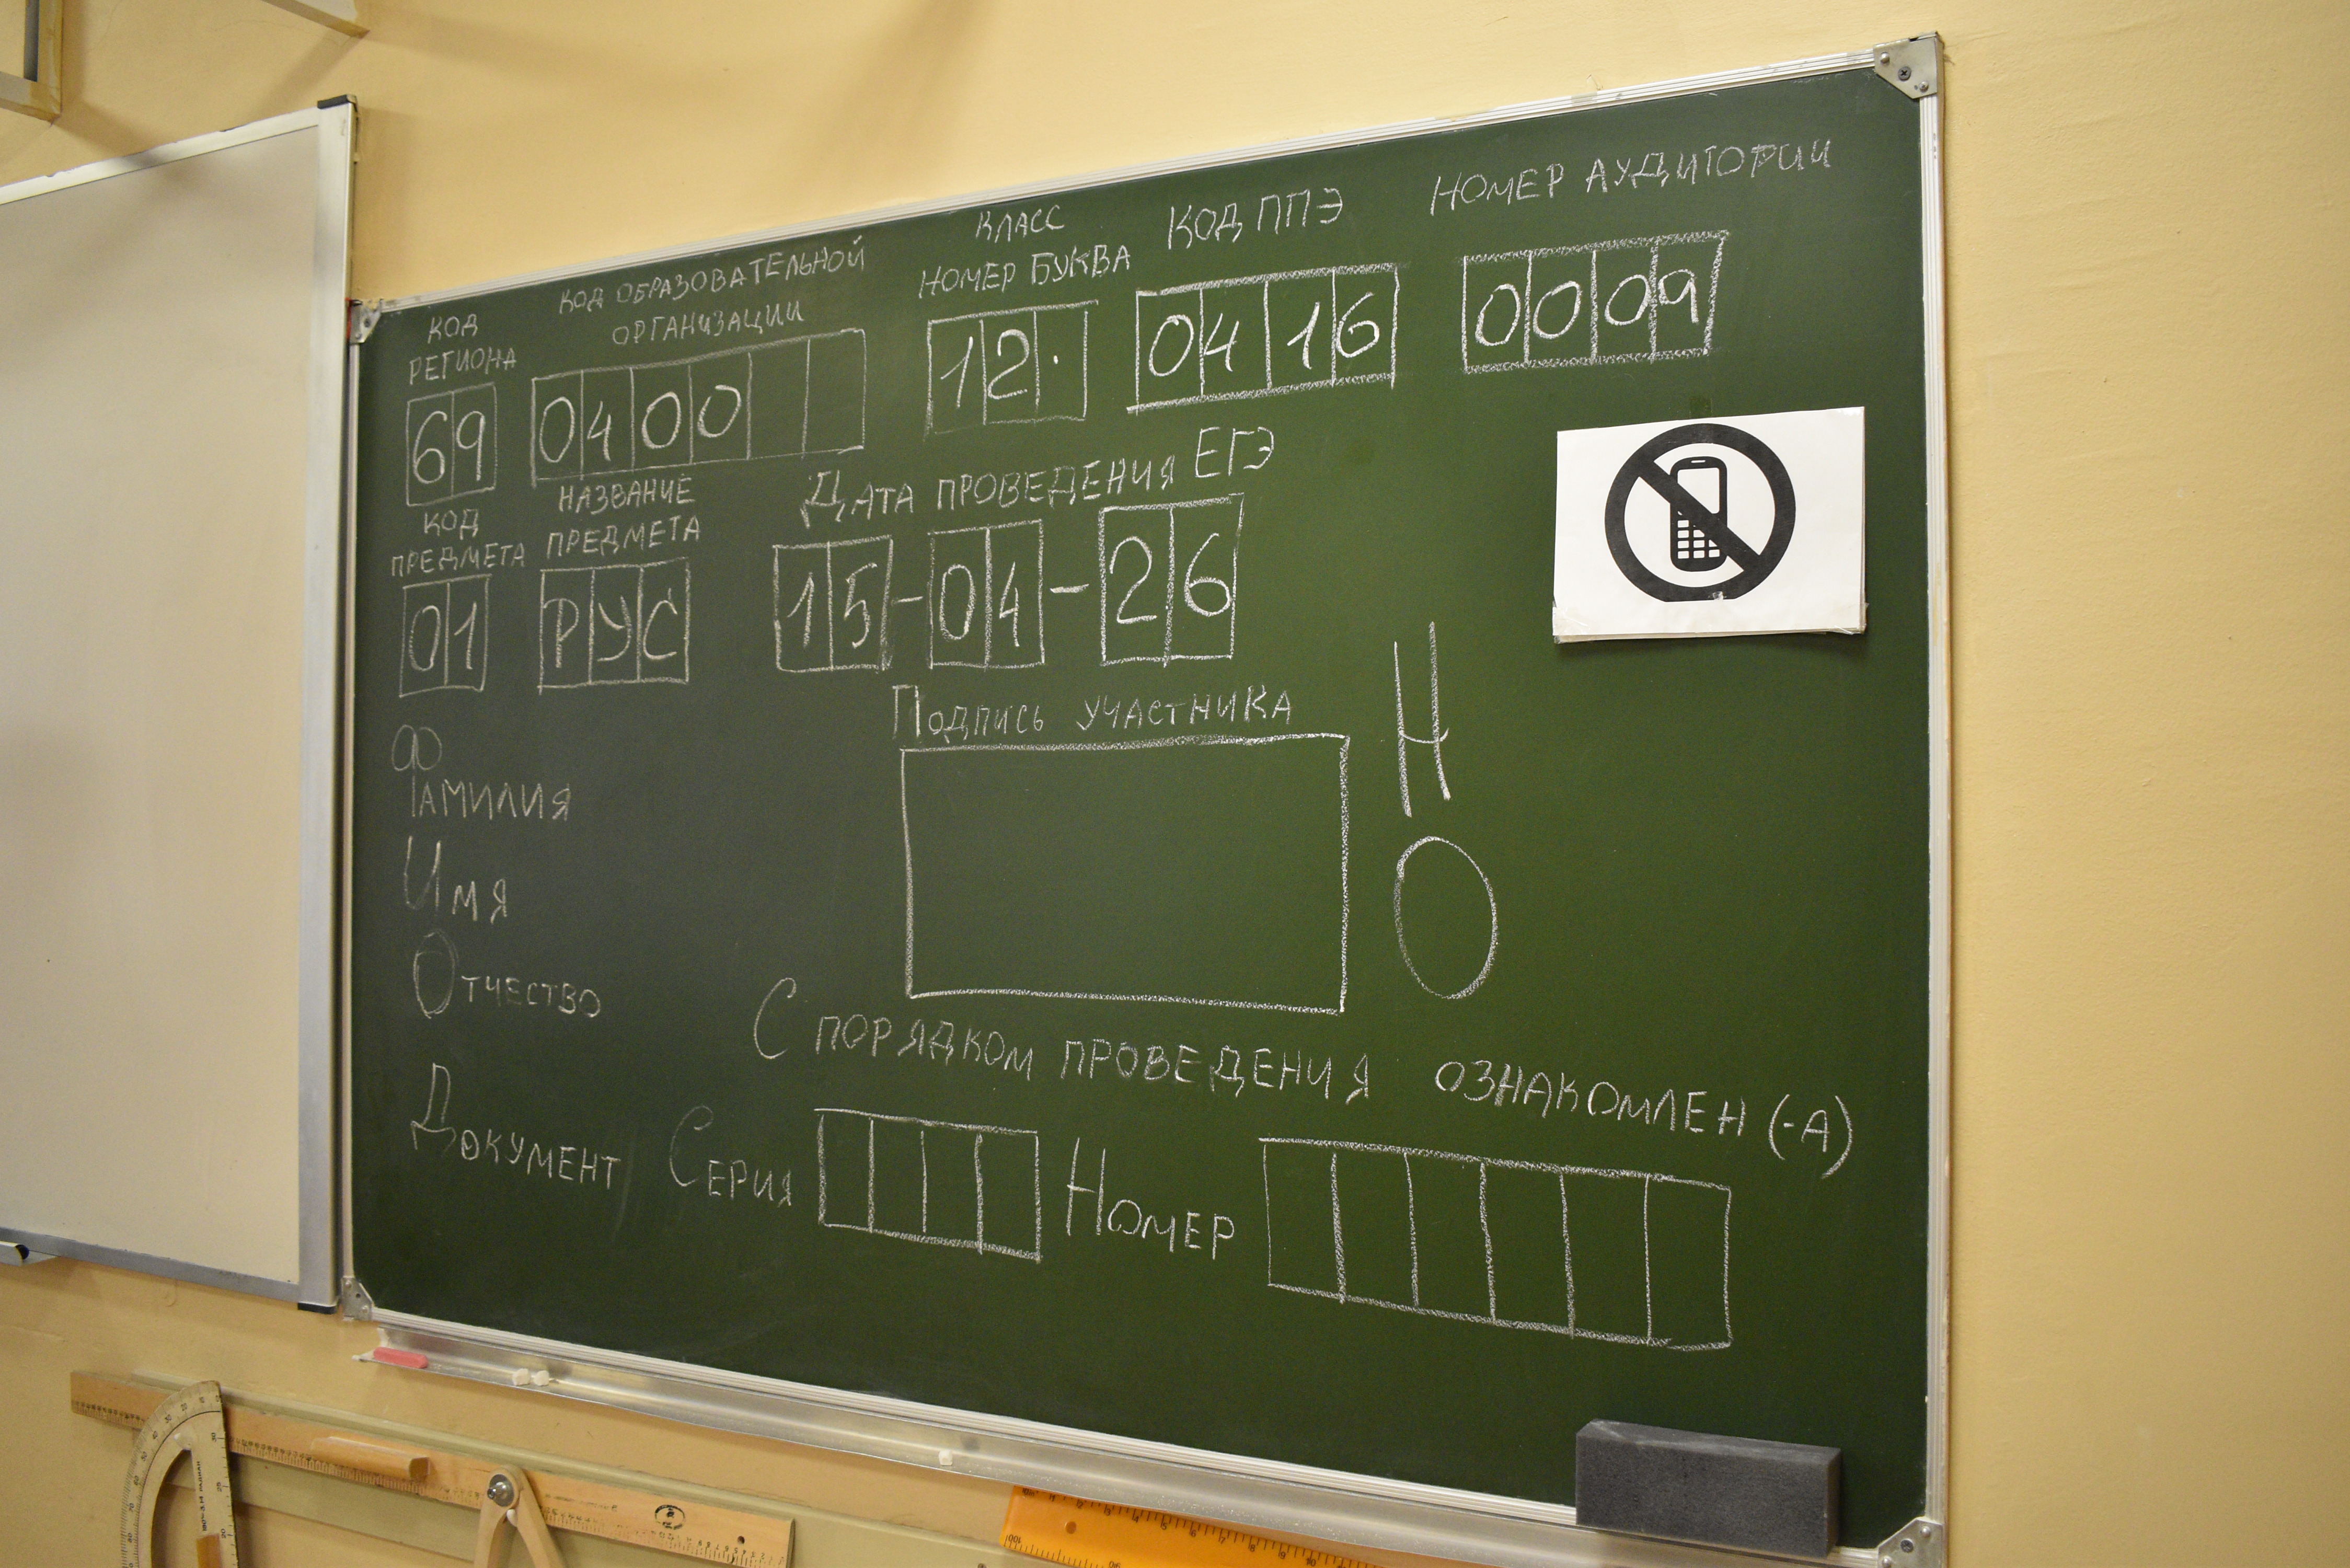 КОД РЕГИОНА
69
КОД ОБРАЗОВАТЕЛЬНОЙ
ОРГАНИЗАЦИИ
0400
КЛАСС
НОМЕР БУКВА
12.
КОД ППЭ
0416
НОМЕР АУДИТОРИИ
0009
КОД
ПРЕДМЕТА
01
НАЗВАНИЕ
ПРЕДМЕТА
РУС
ДАТА ПРОВЕДЕНИЯ ЕГЭ
15-04-26
ФАМИЛИЯ
ИМЯ
ОТЧЕСТВО
ПОДПИСЬ УЧАСТНИКА
Н
О
С ПОРЯДКОМ ПРОВЕДЕНИЯ ОЗНАКОМЛЕН (-А)
ДОКУМЕНТ СЕРИЯ НОМЕР